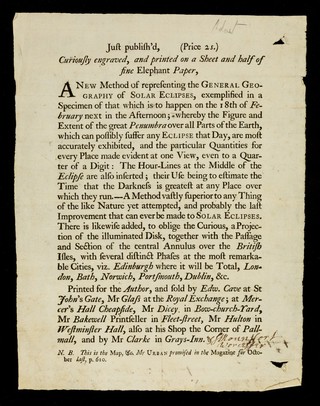 Just publish'd, (Price 2s.)
Curiously engraved, and printed on a Sheet and half of
fine Elephant Paper,
A NEW Method of representing the GENERAL GEO-
GRAPHY of SOLAR ECLIPSES, exemplified in a
Specimen of that which is to happen on the 18th of Fe-
bruary next in the Afternoon; whereby the Figure and
Extent of the great Penumbra over all Parts of the Earth,
which can possibly suffer any ECLIPSE that Day, are most
accurately exhibited, and the particular Quantities for
every Place made evident at one View, even to a Quar-
ter of a Digit: The Hour-Lines at the Middle of the
Eclipse are also inserted; their Use being to estimate the
Time that the Darkness is greatest at any Place over
which they run.—A Method vastly superior to any Thing
of the like Nature yet attempted, and probably the last
Improvement that can ever be made to SOLAR ECLIPSES.
There is likewise added, to oblige the Curious, a Projec-
tion of the illuminated Disk, together with the Passage
and Section of the central Annulus over the British
Isles, with several distinct Phases at the most remarka-
ble Cities, viz. Edinburgh where it will be Total, Lon-
don, Bath, Norwich, Portsmouth, Dublin, &c.
Printed for the Author, and sold by Edw. Cave at St
John's Gate, Mr Glass at the Royal Exchange; at Mer-
cer's Hall Cheapside, Mr Dicey in Bow-church-Yard,
Mr Bakewell Printseller in Fleet-street, Mr Hulton in
Westminster Hall, also at his Shop the Corner of Pall-
mall, and by Mr Clarke in Grays-Inn.
N. B. This is the Map, &c. Mr URBAN promised in the Magazine for Octo-
ber last, p. 620.